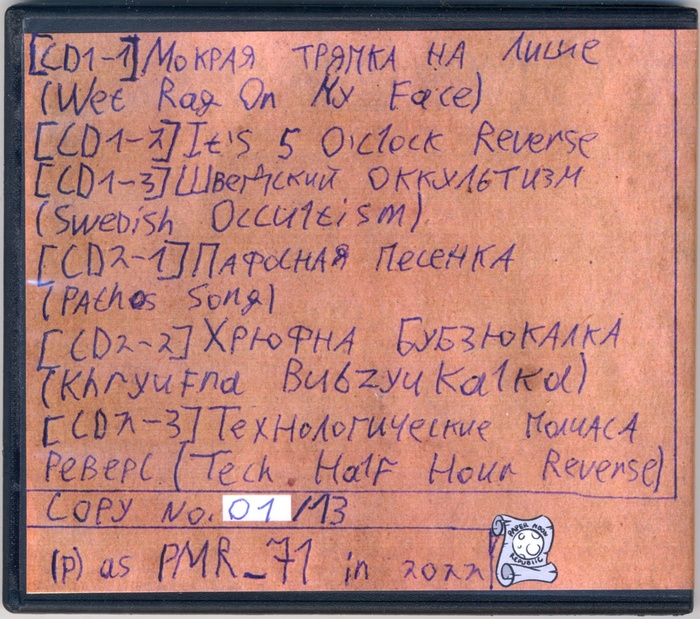 [CD1-1] Мокрая тряпка на лице
(Wet Rag On My Face)
[CD1-2] It's 5 O'clock Reverse
[CD1-3] Шведский оккультизм
(Swedish Occultism)
[CD2-1] Пафосная песенка
(Pathos Song)
[CD2-2] Хрюфна Бубзюкалка
(Khryufna Bubzyukalka)
[CD2-3] Технологические полчаса
реверс (Tech Half Hour Reverse)
COPY No. 01/13
(p) as PMR_71 in 2022
PAPER MOON
REPUBLIC